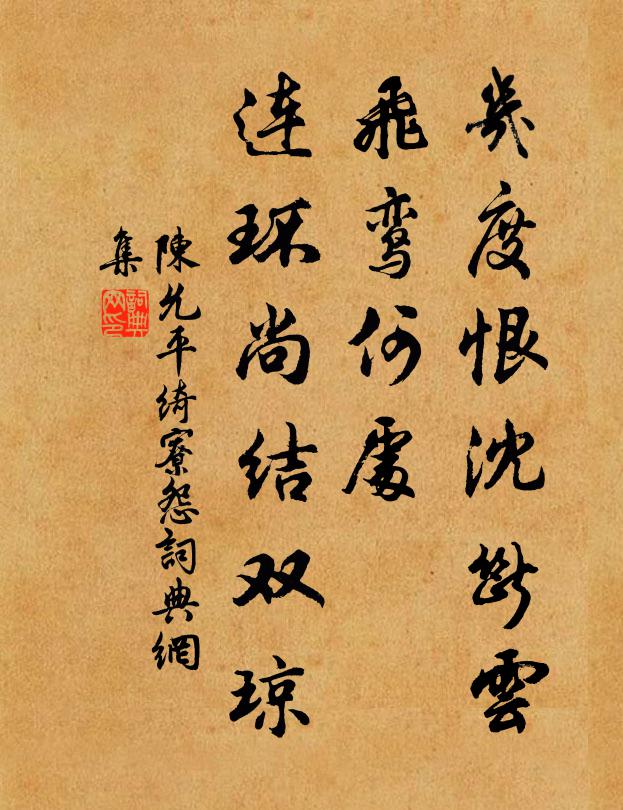 幾度恨沈斷雲
飛鸾何處
连环尚结双琼
陳允平綺寮怨詞典網
集
詞典網印